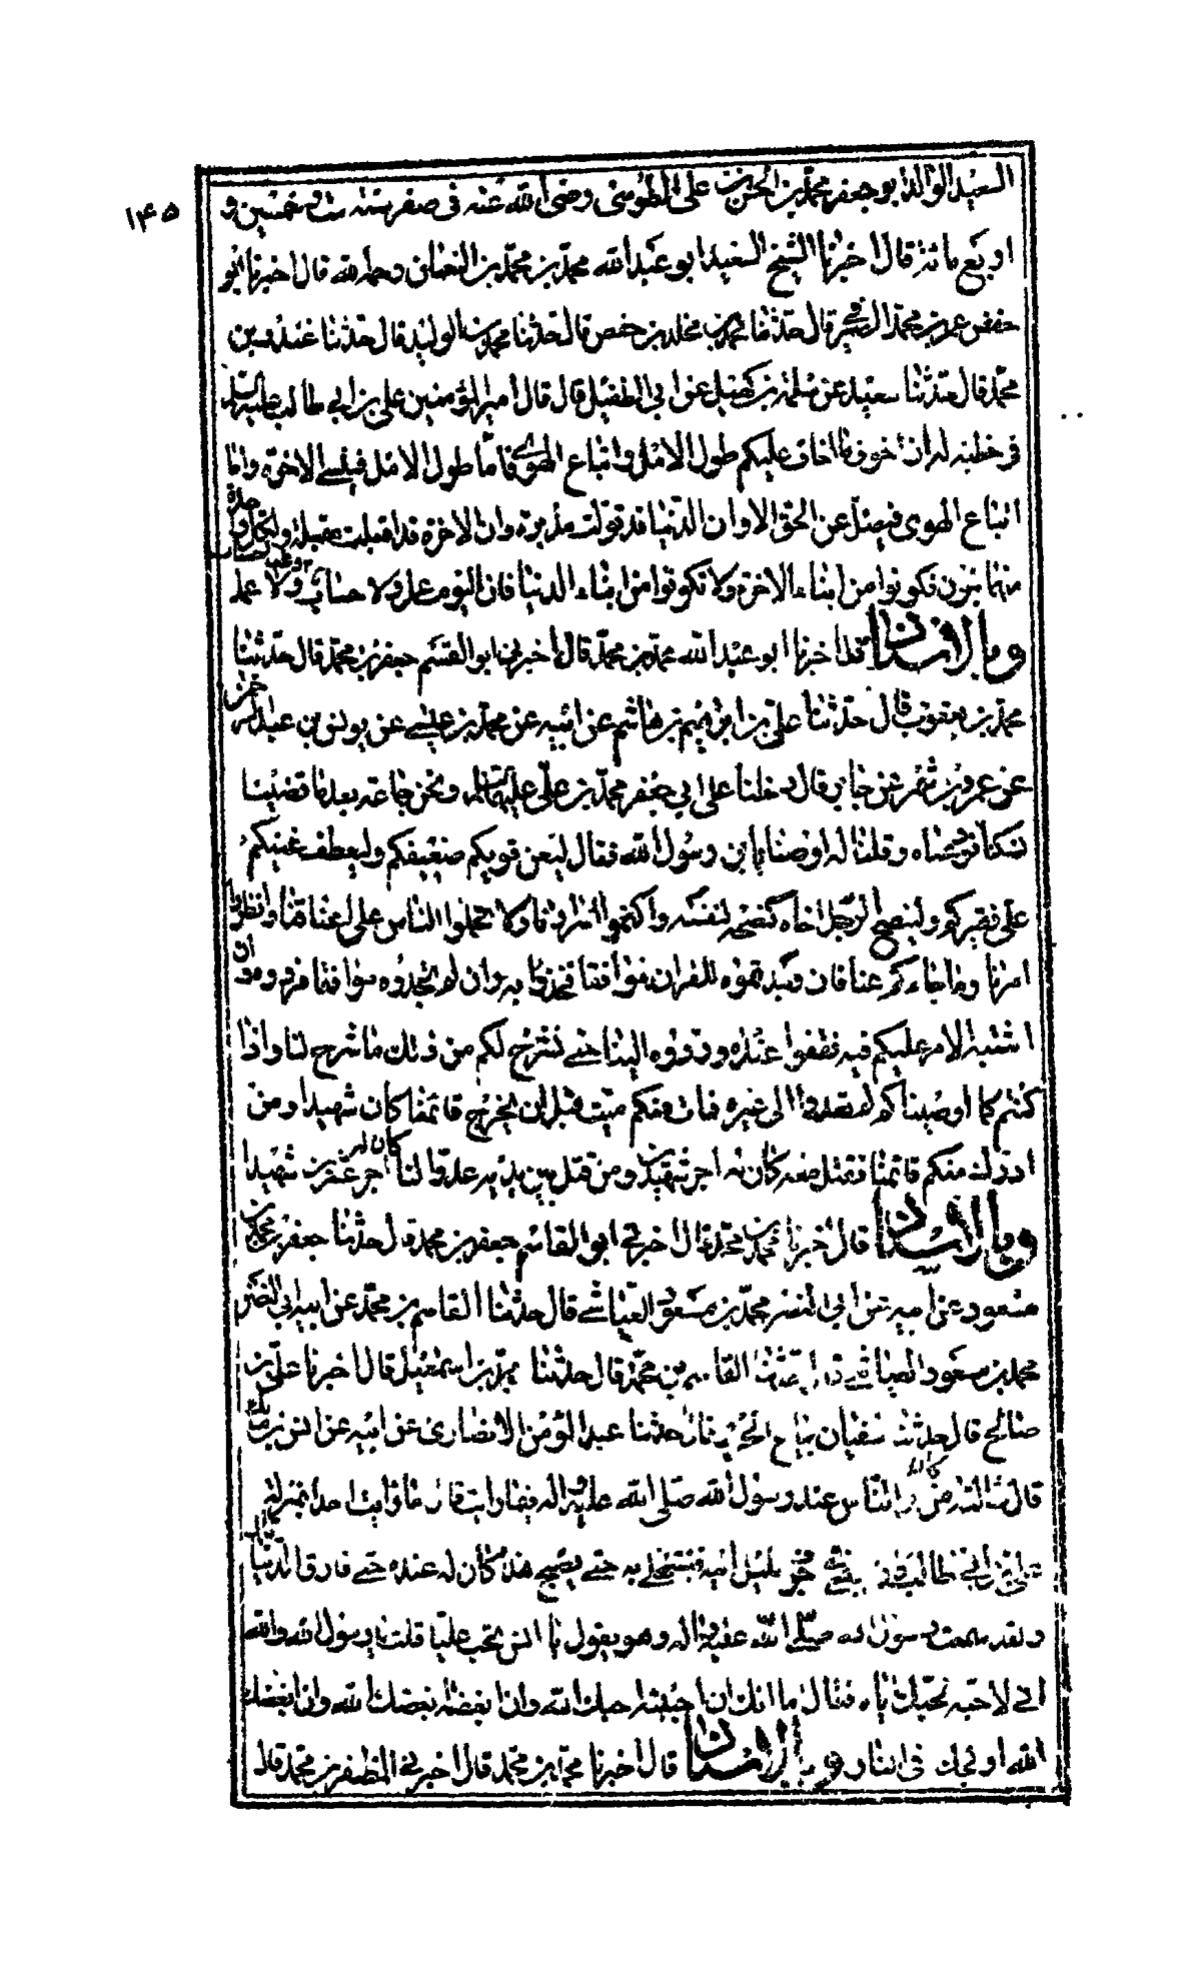 ١٤٥
السعيد الوالد ابو جعفر محمد بن الحسن بن علي الطوسي رضى الله عنه فى صفر سنة ست وخمسين و
اربع مائة قال اخبرنا الشيخ السعيد ابو عبد الله محمد بن محمد بن النعمان رحمه الله قال اخبرنا ابو
حفص عمر بن محمد الصيرفي قال حدثنا محمد بن مخلد بن حفص قال حدثنا محمد بن الوليد قال حدثنا غندر بن
محمد قال حدثنا سعيد عن سلمة بن كهيل عن ابي الطفيل قال قال امير المؤمنين علي بن ابي طالب عليه السلام
فى خطبة له ان اخوف ما اخاف عليكم طول الامل واتباع الهوى فاما طول الامل فينسي الاخرة واما
اتباع الهوى فيصد عن الحق الا وان الدنيا قد تولت مدبرة وان الاخرة قد اقبلت مقبلة ولكل واحدة
منهما بنون فكونوا من ابناء الاخرة ولا تكونوا من ابناء الدنيا فان اليوم عمل ولا حساب وغدا حساب ولا عمل
وبالاسناد قال اخبرنا ابو عبد الله محمد بن محمد قال اخبرني ابو القسم جعفر بن محمد قال حدثنا
محمد بن يعقوب قال حدثنا علي بن ابرهيم بن هاشم عن ابيه عن محمد بن عيسى عن يونس بن عبد الرحمن
عن عمرو بن شمر عن جابر قال دخلنا على ابي جعفر محمد بن علي عليهما السلام ونحن جماعة بعد ما قضينا
نسكنا فودعناه وقلنا له اوصنا يابن رسول الله فقال ليعن قويكم ضعيفكم وليعطف غنيكم
على فقيركم ولينصح الرجل اخاه كنصحه لنفسه واكتموا اسرارنا ولا تحملوا الناس على اعناقنا وانظروا
امرنا وما جاءكم عنا فان وجدتموه للقران موافقا فخذوا به وان لم تجدوه موافقا فردوه وان
اشتبه الامر عليكم فيه فقفوا عنده وردوه الينا حتى نشرح لكم من ذلك ما شرح لنا واذا
كنتم كما اوصيناكم لم تعدوا الى غيره فمات منكم ميت قبل ان يخرج قائمنا كان شهيدا ومن
ادرك منكم قائمنا فقتل معه كان له اجر شهيدين ومن قتل بين يديه عدوا لنا كان له اجر عشرين شهيدا
وبالاسناد قال اخبرنا محمد بن محمد قال اخبرني ابو القاسم جعفر بن محمد قال حدثنا جعفر بن محمد بن
مسعود عن ابيه عن ابي النضر محمد بن مسعود العياشي قال حدثنا القاسم بن محمد عن ابيه ابي النضر
محمد بن مسعود العياشي قال حدثنا القاسم بن محمد قال حدثنا محمد بن اسمعيل قال اخبرنا علي بن
صالح قال حدثنا سفيان بياع الحرير قال حدثنا عبد المؤمن الانصارى عن ابيه عن انس بن مالك
قال سالته من كان اثر الناس عند رسول الله صلى الله عليه واله فيما رايت قال ما رايت احدا بمنزلة
علي بن ابي طالب ان كان يبعثني في جوف الليل اليه فيستخلي به حتى يصبح هذا كان له عنده حتى فارق الدنيا
ولقد سمعت رسول الله صلى الله عليه واله وهو يقول يا انس تحب عليا قلت يا رسول الله والله
اني لاحبه لحبك اياه فقال اما انك ان احببته احبك الله وان ابغضته ابغضك الله وان ابغضك
الله اولجك فى النار وبالاسناد قال اخبرنا محمد بن محمد قال اخبرني المظفر بن محمد قال